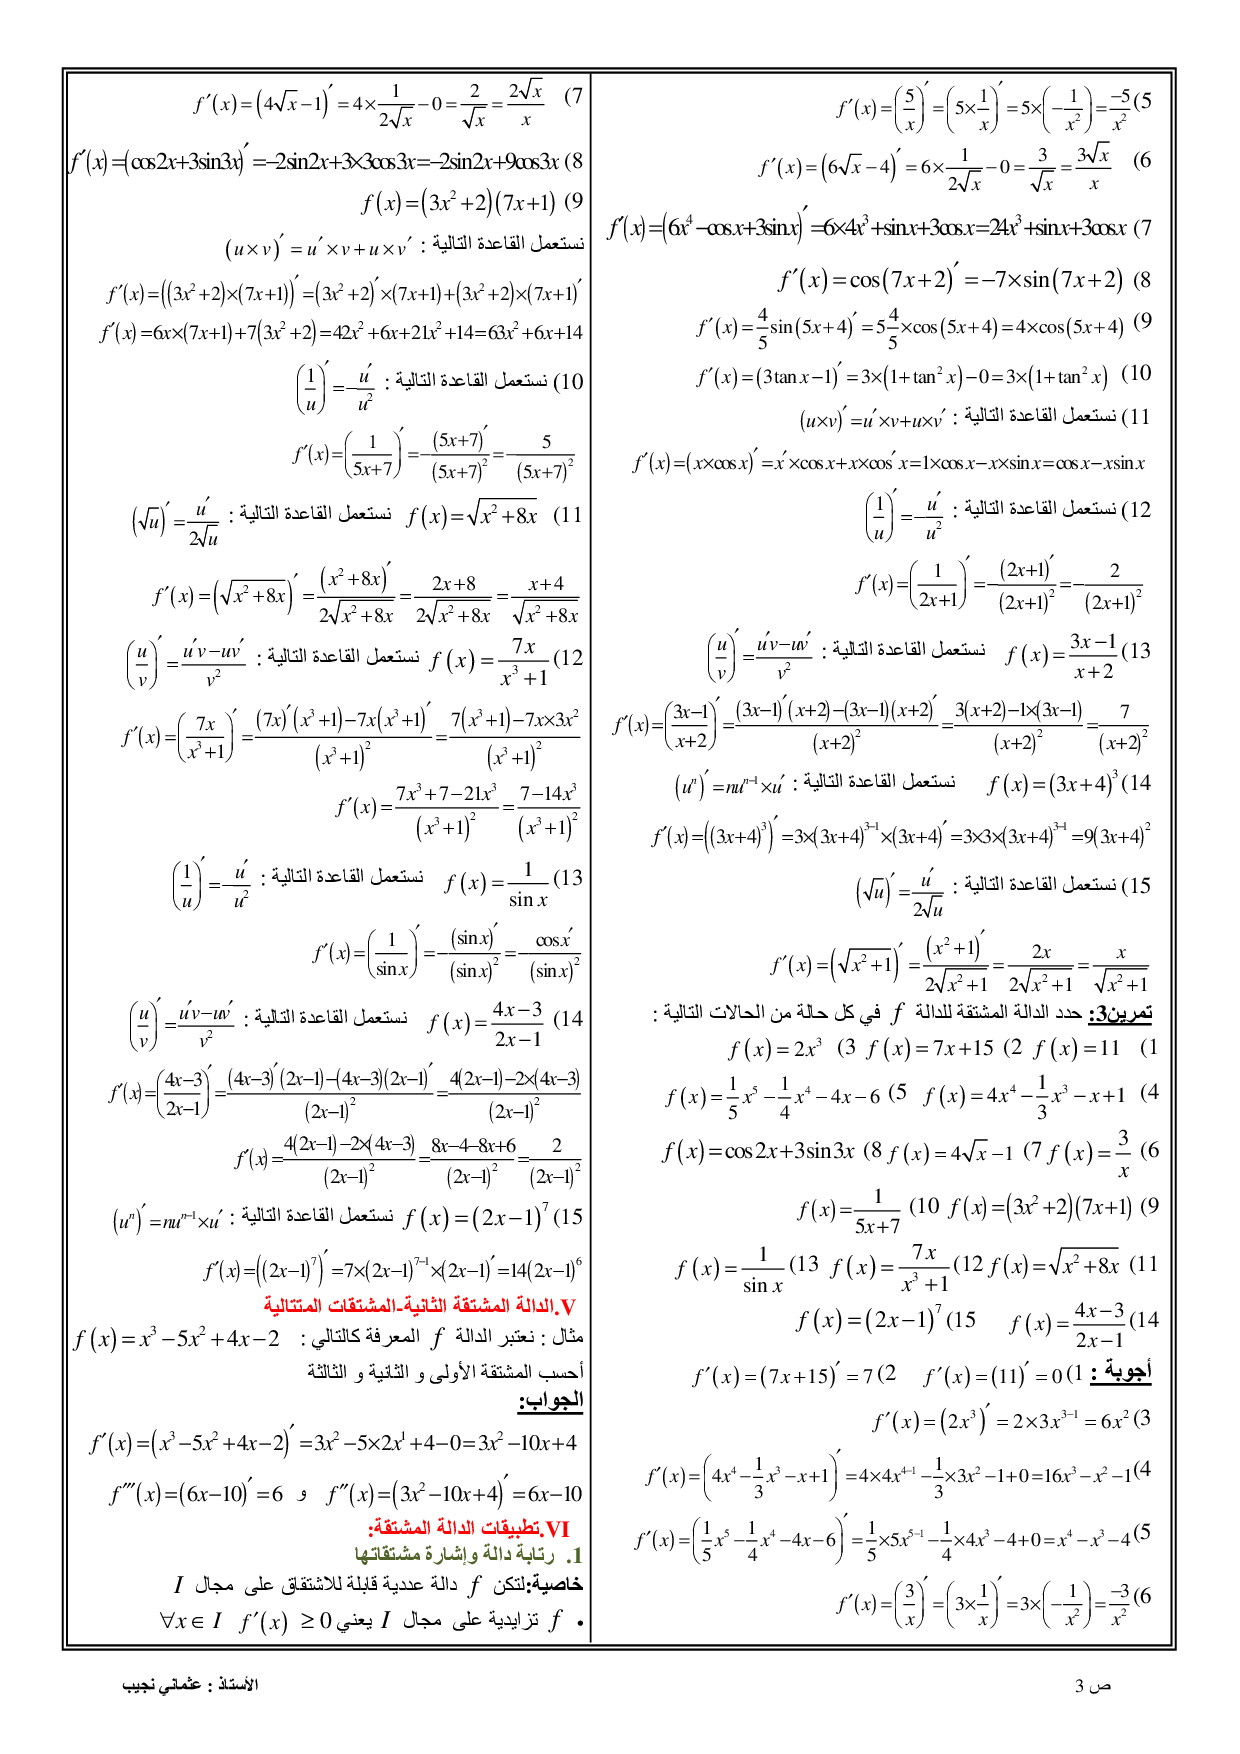 5) f′(x) = (5/x)′ = (5×1/x)′ = 5×(−1/x²) = −5/x²
6) f′(x) = (6√x − 4)′ = 6×1/(2√x) − 0 = 3/√x = 3√x/x
7) f′(x) = (6x⁴ − cos x + 3sin x)′ = 6×4x³ + sin x + 3cos x = 24x³ + sin x + 3cos x
8) f′(x) = cos(7x+2)′ = −7×sin(7x+2)
9) f′(x) = 4/5 sin(5x+4)′ = 5 4/5 ×cos(5x+4) = 4×cos(5x+4)
10) f′(x) = (3tan x − 1)′ = 3×(1+tan² x) − 0 = 3×(1+tan² x)
11) نستعمل القاعدة التالية : (u×v)′ = u′×v+u×v′
f′(x) = (x×cos x)′ = x′×cos x + x×cos′ x = 1×cos x − x×sin x = cos x − x sin x
12) نستعمل القاعدة التالية : (1/u)′ = −u′/u²
f′(x) = (1/(2x+1))′ = −(2x+1)′/(2x+1)² = −2/(2x+1)²
13) f(x) = (3x−1)/(x+2) نستعمل القاعدة التالية : (u/v)′ = (u′v−uv′)/v²
f′(x) = ((3x−1)/(x+2))′ = ((3x−1)′(x+2)−(3x−1)(x+2)′)/(x+2)² = (3(x+2)−1×(3x−1))/(x+2)² = 7/(x+2)²
14) f(x) = (3x+4)³ نستعمل القاعدة التالية : (uⁿ)′ = nuⁿ⁻¹×u′
f′(x) = ((3x+4)³)′ = 3×(3x+4)³⁻¹×(3x+4)′ = 3×3×(3x+4)³⁻¹ = 9(3x+4)²
15) نستعمل القاعدة التالية : (√u)′ = u′/(2√u)
f′(x) = (√(x²+1))′ = (x²+1)′/(2√(x²+1)) = 2x/(2√(x²+1)) = x/√(x²+1)
تمرين3: حدد الدالة المشتقة للدالة f في كل حالة من الحالات التالية :
1) f(x) = 11 2) f(x) = 7x+15 3) f(x) = 2x³
4) f(x) = 4x⁴ − 1/3 x³ − x + 1 5) f(x) = 1/5 x⁵ − 1/4 x⁴ − 4x − 6
6) f(x) = 3/x 7) f(x) = 4√x − 1 8) f(x) = cos 2x + 3sin 3x
9) f(x) = (3x²+2)(7x+1) 10) f(x) = 1/(5x+7)
11) f(x) = √(x²+8x) 12) f(x) = 7x/(x³+1) 13) f(x) = 1/sin x
14) f(x) = (4x−3)/(2x−1) 15) f(x) = (2x−1)⁷
أجوبة : 1) f′(x) = (11)′ = 0 2) f′(x) = (7x+15)′ = 7
3) f′(x) = (2x³)′ = 2×3x³⁻¹ = 6x²
4) f′(x) = (4x⁴ − 1/3 x³ − x + 1)′ = 4×4x⁴⁻¹ − 1/3×3x² − 1 + 0 = 16x³ − x² − 1
5) f′(x) = (1/5 x⁵ − 1/4 x⁴ − 4x − 6)′ = 1/5×5x⁵⁻¹ − 1/4×4x³ − 4 + 0 = x⁴ − x³ − 4
6) f′(x) = (3/x)′ = (3×1/x)′ = 3×(−1/x²) = −3/x²
7) f′(x) = (4√x − 1)′ = 4×1/(2√x) − 0 = 2/√x = 2√x/x
8) f′(x) = (cos 2x + 3sin 3x)′ = −2sin 2x + 3×3cos 3x = −2sin 2x + 9cos 3x
9) f(x) = (3x²+2)(7x+1)
نستعمل القاعدة التالية : (u×v)′ = u′×v+u×v′
f′(x) = ((3x²+2)×(7x+1))′ = (3x²+2)′×(7x+1)+(3x²+2)×(7x+1)′
f′(x) = 6x×(7x+1)+7(3x²+2) = 42x²+6x+21x²+14 = 63x²+6x+14
10) نستعمل القاعدة التالية : (1/u)′ = −u′/u²
f′(x) = (1/(5x+7))′ = −(5x+7)′/(5x+7)² = −5/(5x+7)²
11) f(x) = √(x²+8x) نستعمل القاعدة التالية : (√u)′ = u′/(2√u)
f′(x) = (√(x²+8x))′ = (x²+8x)′/(2√(x²+8x)) = (2x+8)/(2√(x²+8x)) = (x+4)/√(x²+8x)
12) f(x) = 7x/(x³+1) نستعمل القاعدة التالية : (u/v)′ = (u′v−uv′)/v²
f′(x) = (7x/(x³+1))′ = ((7x)′(x³+1)−7x(x³+1)′)/(x³+1)² = (7(x³+1)−7x×3x²)/(x³+1)²
f′(x) = (7x³+7−21x³)/(x³+1)² = (7−14x³)/(x³+1)²
13) f(x) = 1/sin x نستعمل القاعدة التالية : (1/u)′ = −u′/u²
f′(x) = (1/sin x)′ = −(sin x)′/(sin x)² = −cos x′/(sin x)²
14) f(x) = (4x−3)/(2x−1) نستعمل القاعدة التالية : (u/v)′ = (u′v−uv′)/v²
f′(x) = ((4x−3)/(2x−1))′ = ((4x−3)′(2x−1)−(4x−3)(2x−1)′)/(2x−1)² = (4(2x−1)−2×(4x−3))/(2x−1)²
f′(x) = (4(2x−1)−2×(4x−3))/(2x−1)² = (8x−4−8x+6)/(2x−1)² = 2/(2x−1)²
15) f(x) = (2x−1)⁷ نستعمل القاعدة التالية : (uⁿ)′ = nuⁿ⁻¹×u′
f′(x) = ((2x−1)⁷)′ = 7×(2x−1)⁷⁻¹×(2x−1)′ = 14(2x−1)⁶
V.الدالة المشتقة الثانية-المشتقات المتتالية
مثال : نعتبر الدالة f المعرفة كالتالي : f(x) = x³ − 5x² + 4x − 2
أحسب المشتقة الأولى و الثانية و الثالثة
الجواب:
f′(x) = (x³ − 5x² + 4x − 2)′ = 3x² − 5×2x¹ + 4 − 0 = 3x² − 10x + 4
f″(x) = (3x² − 10x + 4)′ = 6x − 10 و f‴(x) = (6x − 10)′ = 6
VI.تطبيقات الدالة المشتقة:
1. رتابة دالة وإشارة مشتقاتها
خاصية:لتكن f دالة عددية قابلة للاشتقاق على مجال I
• f تزايدية على مجال I يعني ∀x ∈ I f′(x) ≥ 0
ص 3
الأستاذ : عثماني نجيب